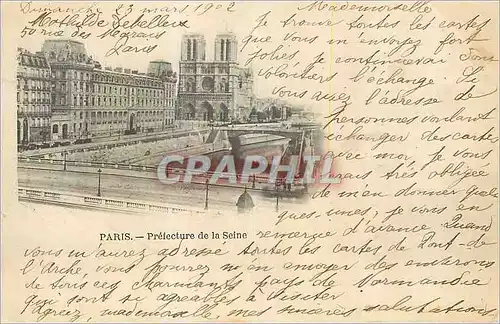 Dimanche 23 mars 1902
Mathilde Lebelleux
50 rue des Marais
Paris
Mademoiselle
Je trouve toutes les cartes
que vous m'envoyez fort
jolies, je continuerai donc
volontiers l'échange. Si
vous avez l'adresse de
personnes voulant
échanger des cartes
avec moi, je vous
serais très obligée
de m'en donner quel
ques-unes, je vous en
remercie d'avance. Quand
vous m'aurez adressé toutes les cartes de Pont-de-
l'Arche, vous pourrez m'en envoyer des environs
de tous ces charmants pays de Normandie
qui sont si agréables à visiter
Agréez, mademoiselle, mes sincères salutations
CPARAMA
PARIS. — Préfecture de la Seine